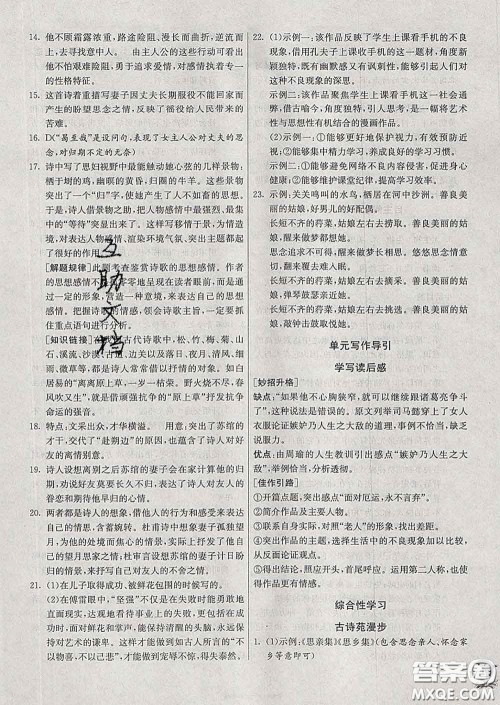 14. 他不顾霜露浓重，路途险阻、漫长而曲折，逆流而
上，去寻找意中人。由主人公的这些行动可看出
他不怕艰难险阻，勇于追求爱情，对感情执着专一
的性格特征。
15. 这首诗着重描写妻子因丈夫长期服役不能回家而
产生的盼望思念之情，反映了徭役给人民带来的
苦难。
16.
对归期不定的无奈)
17. 诗中写了思妇视野中最能触动她心弦的几样景物：
栖于埘的鸡，幽暝的黄昏，归圈的牛羊。这些景物
突出了一个“归”字，使其产生了人不如畜的情
感，诗人借景物之助，把人物感情中最强烈、最集
中的“等待”突显出来了。这样写移情于景，为情
造境，对表达人物心情、渲染环境气氛、突出主题都起了
很好的作用。
[解题规律]此题考查鉴赏诗歌的思想感情。作者
的思想感情不一定零距离地呈现在读者眼前，而是通
过一定的形象，营造一种意境，来表达自己的思想感
情。把握诗歌的思想感情，领会诗歌主旨，要抓住
其中重点语句进行分析。
[知识链接]在我国古代诗歌中，松、竹、梅、菊、山
石、溪流、沙漠、古道、边关以及落日、夜月、清风、细
雨、微草等，都是诗人借以抒情的对象。例如：白
居易的“离离原上草，一岁一枯荣。野火烧不尽，春
风吹又生”，就是借顽强不屈的“原上草”抒发革
命命运的强音。
18. 特点：文采出众，才华横溢。 用意：突出苏绾的
才华，交代了“赴朔边”的原因，也表达了诗人对
朋友的关切与不舍。
19. 诗人设想离别之后苏绾的妻子会在家计算他的归
期，以劝好友莫要久久不归，表现了诗人对友人的
眷恋和期待他早日归来的心情。
20. 两者都是诗人的想象，借想象对方的处境来表达
自己的情思，含蓄婉转。杜甫诗中想象妻子孤独望
月，为自己担忧，来表达对妻子的思念和自己内心
的孤独忧虑之情；杜审言设想苏绾的妻子计日盼
归的情景，来表达自己的情思。
21. (1)在儿子取得成功、被鲜花包围的时候写的。
(2)在傅雷眼中，“坚强”不仅是在失败时能勇敢
地面对，理性地看待事业上的失败，更多地体现在
成功时，面对鲜花和掌声，能保持清醒的头脑，永远
保持对艺术的谦卑。大致相当于古人所言的“不
以物喜，不以己悲”，体现了一种宠辱不惊的情怀。
22. (1)示例一：该作品反映了学生上课看手机的不良
现象，借用孔夫子上课收手机的这一题材，力度
深刻，既有幽默感又有讽刺性，能够引起人们的
自我反省。
示例二：该作品聚焦学生上课看手机这一社会现
象，借古喻今，形象独特，引人深思，是一幅将艺术
性与思想性有机结合的漫画作品。
(2)示例一：①能够更好地保护视力，有效预防近
视；②能够集中精力学习，养成良好学习习惯。
示例二：①能够避免网络不良影响，促进身心健
康；②能够维护课堂纪律。
23. 示例：关关鸣叫的水鸟，栖居在河中沙洲。善良美
丽的姑娘，好男儿的好配偶。
长短不齐的荇菜，姑娘左右去捞。善良美丽的姑
娘，醒来做梦都想她。
思念追求不可得，醒来做梦长相思。悠悠思念情
意切，翻来覆去难入眠。
长短不齐的荇菜，姑娘左右去摘。善良美丽的姑
娘，弹琴鼓瑟亲近她。
长短不齐的荇菜，姑娘左右去拔。善良美丽的姑
娘，敲钟击鼓取悦她。
单元写作导引
学写读后感
[妙招升格]
缺点：“如果他不心胸狭窄，就可以继续跟诸葛亮争斗
了”，这种说法是错误的。原文列举司马懿穿上了女
人衣服论证嫉妒乃人生之大敌的观点，不能够支撑
观点。
优点：由周瑜的人生教训引出感悟“嫉妒乃人生之大
敌”，举例恰当，分析透彻。
[佳作引路]
①开篇点题，成功突出感点“面对厄运，永不言弃”。
②概括文章内容，为写感想做铺垫。
③联系现实，对照“老人”的形象，找出差距。
④突出作品主题，选择生活中的不良现象，照应感点，
得出结论。
⑤得出结尾，照应开头，首尾呼应。运用第二人称，也使
得作品更有感染力。
综合性学习
古诗苑漫步
1. (1)示例：《思亲集》《思乡集》(包含思念亲人、怀念
家乡等意即可)
互助文档
答案圈
MXQE.COM